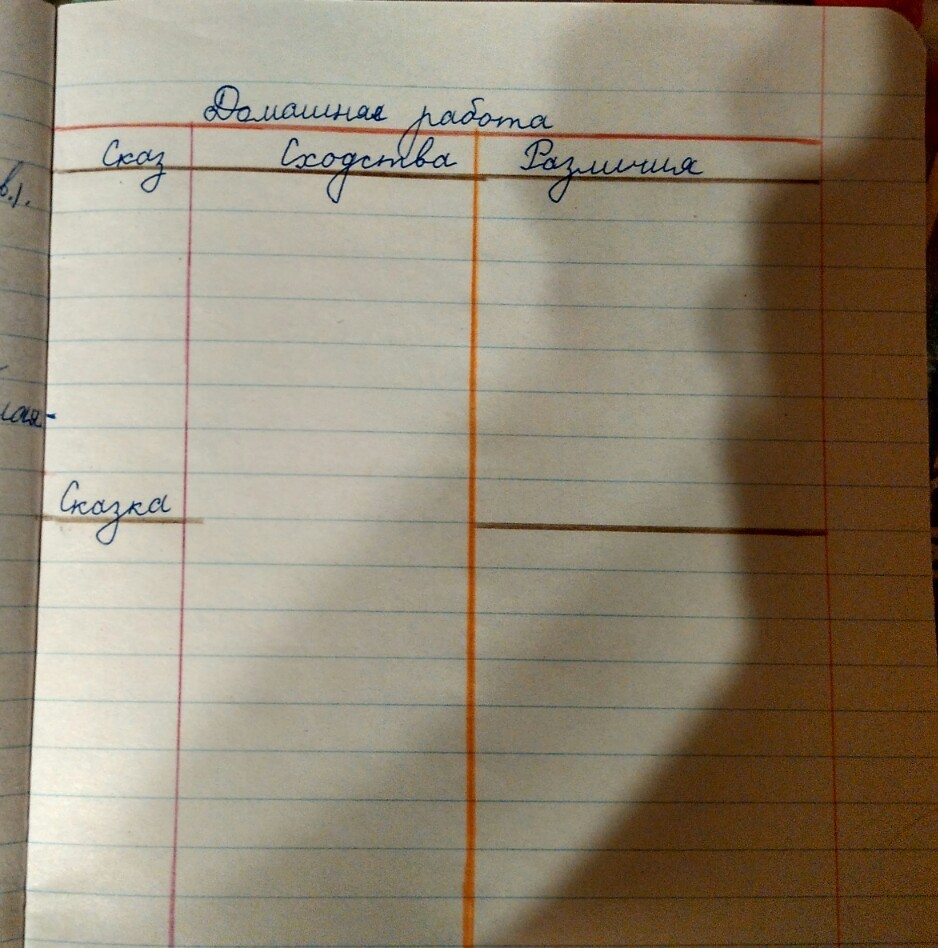 Домашняя работа
Сказ Сходства Различия
в.).
лая-
Сказка